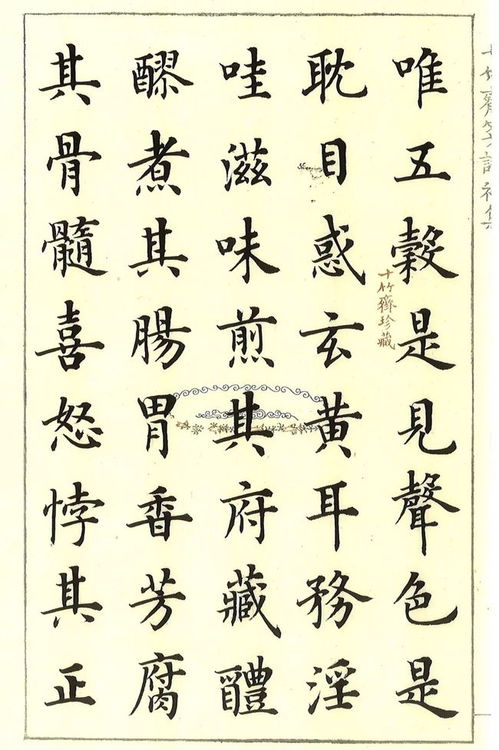 唯五穀是見聲色是
耽目惑玄黃耳務淫
哇滋味煎其府藏醴
醪煮其腸胃香芳腐
其骨髓喜怒悖其正
十竹齋珍藏